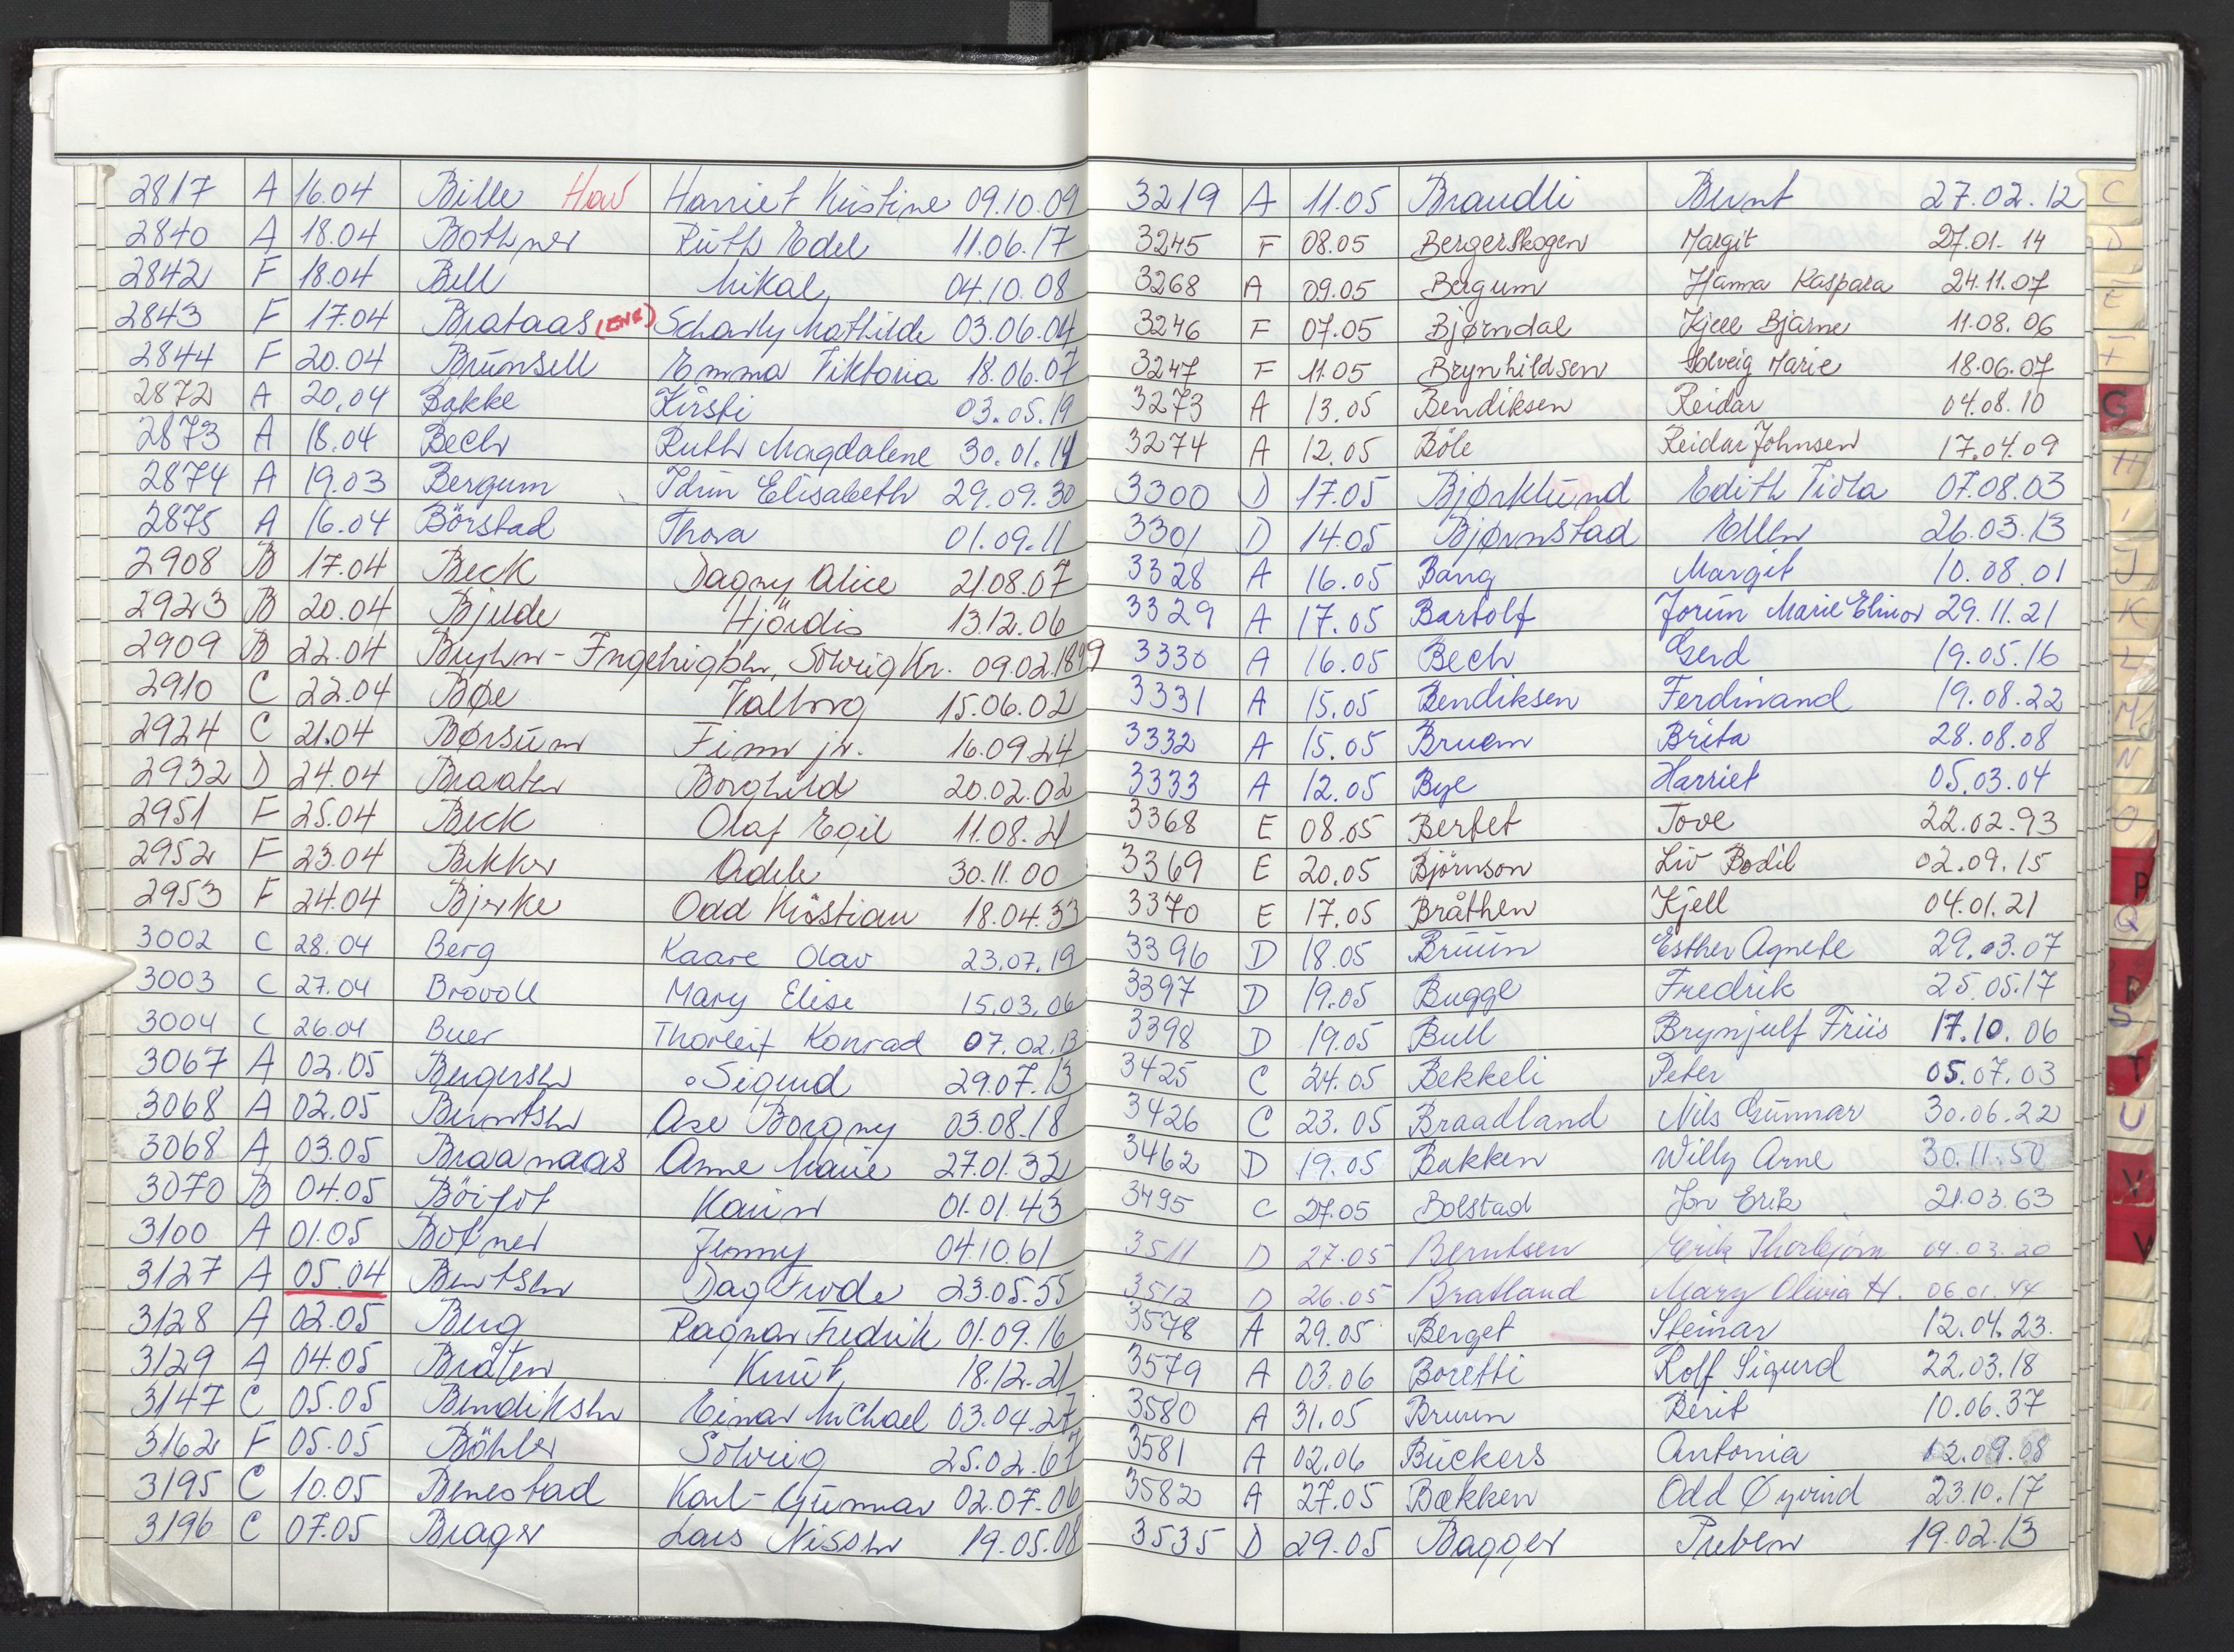 2817 A 16.04 Bille Hav Harriet Kristine 09.10.09
2840 A 18.04 Bothner Ruth Edel 11.06.17
2842 F 18.04 Bell Mikal 04.10.08
2843 F 17.04 Brataas (ENK) Scharly Mathilde 03.06.04
2844 F 20.04 Brunsell Emma Viktoria 18.06.07
2872 A 20.04 Bakke Kirsti 03.05.19
2873 A 18.04 Bech Ruth Magdalene 30.01.14
2874 A 19.03 Bergum Idun Elisabeth 29.09.30
2875 A 16.04 Börstad Thora 01.09.11
2908 B 17.04 Beck Dagny Alice 21.08.07
2923 B 20.04 Bjelde Hjördis 13.12.06
2909 B 22.04 Bryhn - Ingebrigtsen, Solveig Kr. 09.02.1899
2910 C 22.04 Bøe Valborg 15.06.02
2924 C 21.04 Børsum Finn jr. 16.09.24
2932 D 24.04 Braaten Borghild 20.02.02
2951 F 25.04 Beck Olaf Egil 11.08.21
2952 F 23.04 Bekker Adele 30.11.00
2953 F 24.04 Bjerke Odd Kristian 18.04.33
3002 C 28.04 Berg Kaare Olav 23.07.19
3003 C 27.04 Brovoll Mary Elise 15.03.06
3004 C 26.04 Buer Thorleif Konrad 07.02.13
3067 A 02.05 Bergersen Sigurd 29.07.13
3068 A 02.05 Berntsen Ase Borgny 03.08.18
3068 A 03.05 Braanaas Anne Marie 27.01.32
3070 B 04.05 Karin 01.01.43
3100 A 01.05 Botner Jenny 04.10.61
3127 A 05.04 Berntsen Dag Frode 23.05.55
3128 A 02.05 Berg Ragnar Fredrik 01.09.16
3129 A 04.05 Bråten Knut 18.12.21
3147 C 05.05 Bendiksen Einar Michael 03.04.27
3162 F 05.05 Böhler Solveig 25.02.67
3195 C 10.05 Benestad Karl-Gunnar 02.07.06
3196 C 07.05 Brager Lars Nissen 19.05.08
3219 A 11.05 Brandli Bernt 27.02.12
3245 F 08.05 Bergerskogen Margit 27.01.14
3268 A 09.05 Bergum Hanna Kaspara 24.11.07
3246 F 07.05 Bjørndal Kjell Bjarne 11.08.06
3247 F 11.05 Brynhildsen Solveig Marie 18.06.07
3273 A 13.05 Bendiksen Reidar 04.08.10
3274 A 12.05 Böle Reidar Johnsen 17.04.09
3300 D 17.05 Bjørklund Edith Viola 07.08.03
3301 D 14.05 Bjørnstad Ellen 26.03.13
3328 A 16.05 Bang Margit 10.08.01
3329 A 17.05 Bartolf Jorun Marie Elinor 29.11.21
3330 A 16.05 Bech Gerd 19.05.16
3331 A 15.05 Bendiksen Ferdinand 19.08.22
3332 A 15.05 Bruem Brita 28.08.08
3333 A 12.05 Bye Harriet 05.03.04
3368 E 08.05 Bertet Tove 22.02.93
3369 E 20.05 Björnson Liv Bodil 02.09.15
3370 E 17.05 Bråthen Kjell 04.01.21
3396 D 18.05 Bruun Esther Agnete 29.03.07
3397 D 19.05 Bugge Fredrik 25.05.17
3398 D 19.05 Bull Brynjulf Friis 17.10.06
3425 C 24.05 Bekkeli Peter 05.07.03
3426 C 23.05 Braadland Nils Gunnar 30.06.22
3462 D 19.05 Bakken Willy Arne 30.11.50
3495 C 27.05 Bolstad Jon Erik 21.03.63
3511 D 27.05 Berntsen Erik Thorbjørn 04.03.20
3512 D 26.05 Bratland Mary Olivia H. 06.01.44
3578 A 29.05 Berget Steinar 12.04.23.
3579 A 03.06 Boretti Rolf Sigurd 22.03.18
3580 A 31.05 Bruun Berit 10.06.37
3581 A 02.06 Bückers Antonia 12.09.08
3582 A 27.05 Bækken Odd Øyvind 23.10.17
3535 D 29.05 Bagger Preben 19.02.13
C
D
E
F
G
H
I
J
K
L
M
N
O
P
Q
R
S
T
U
V